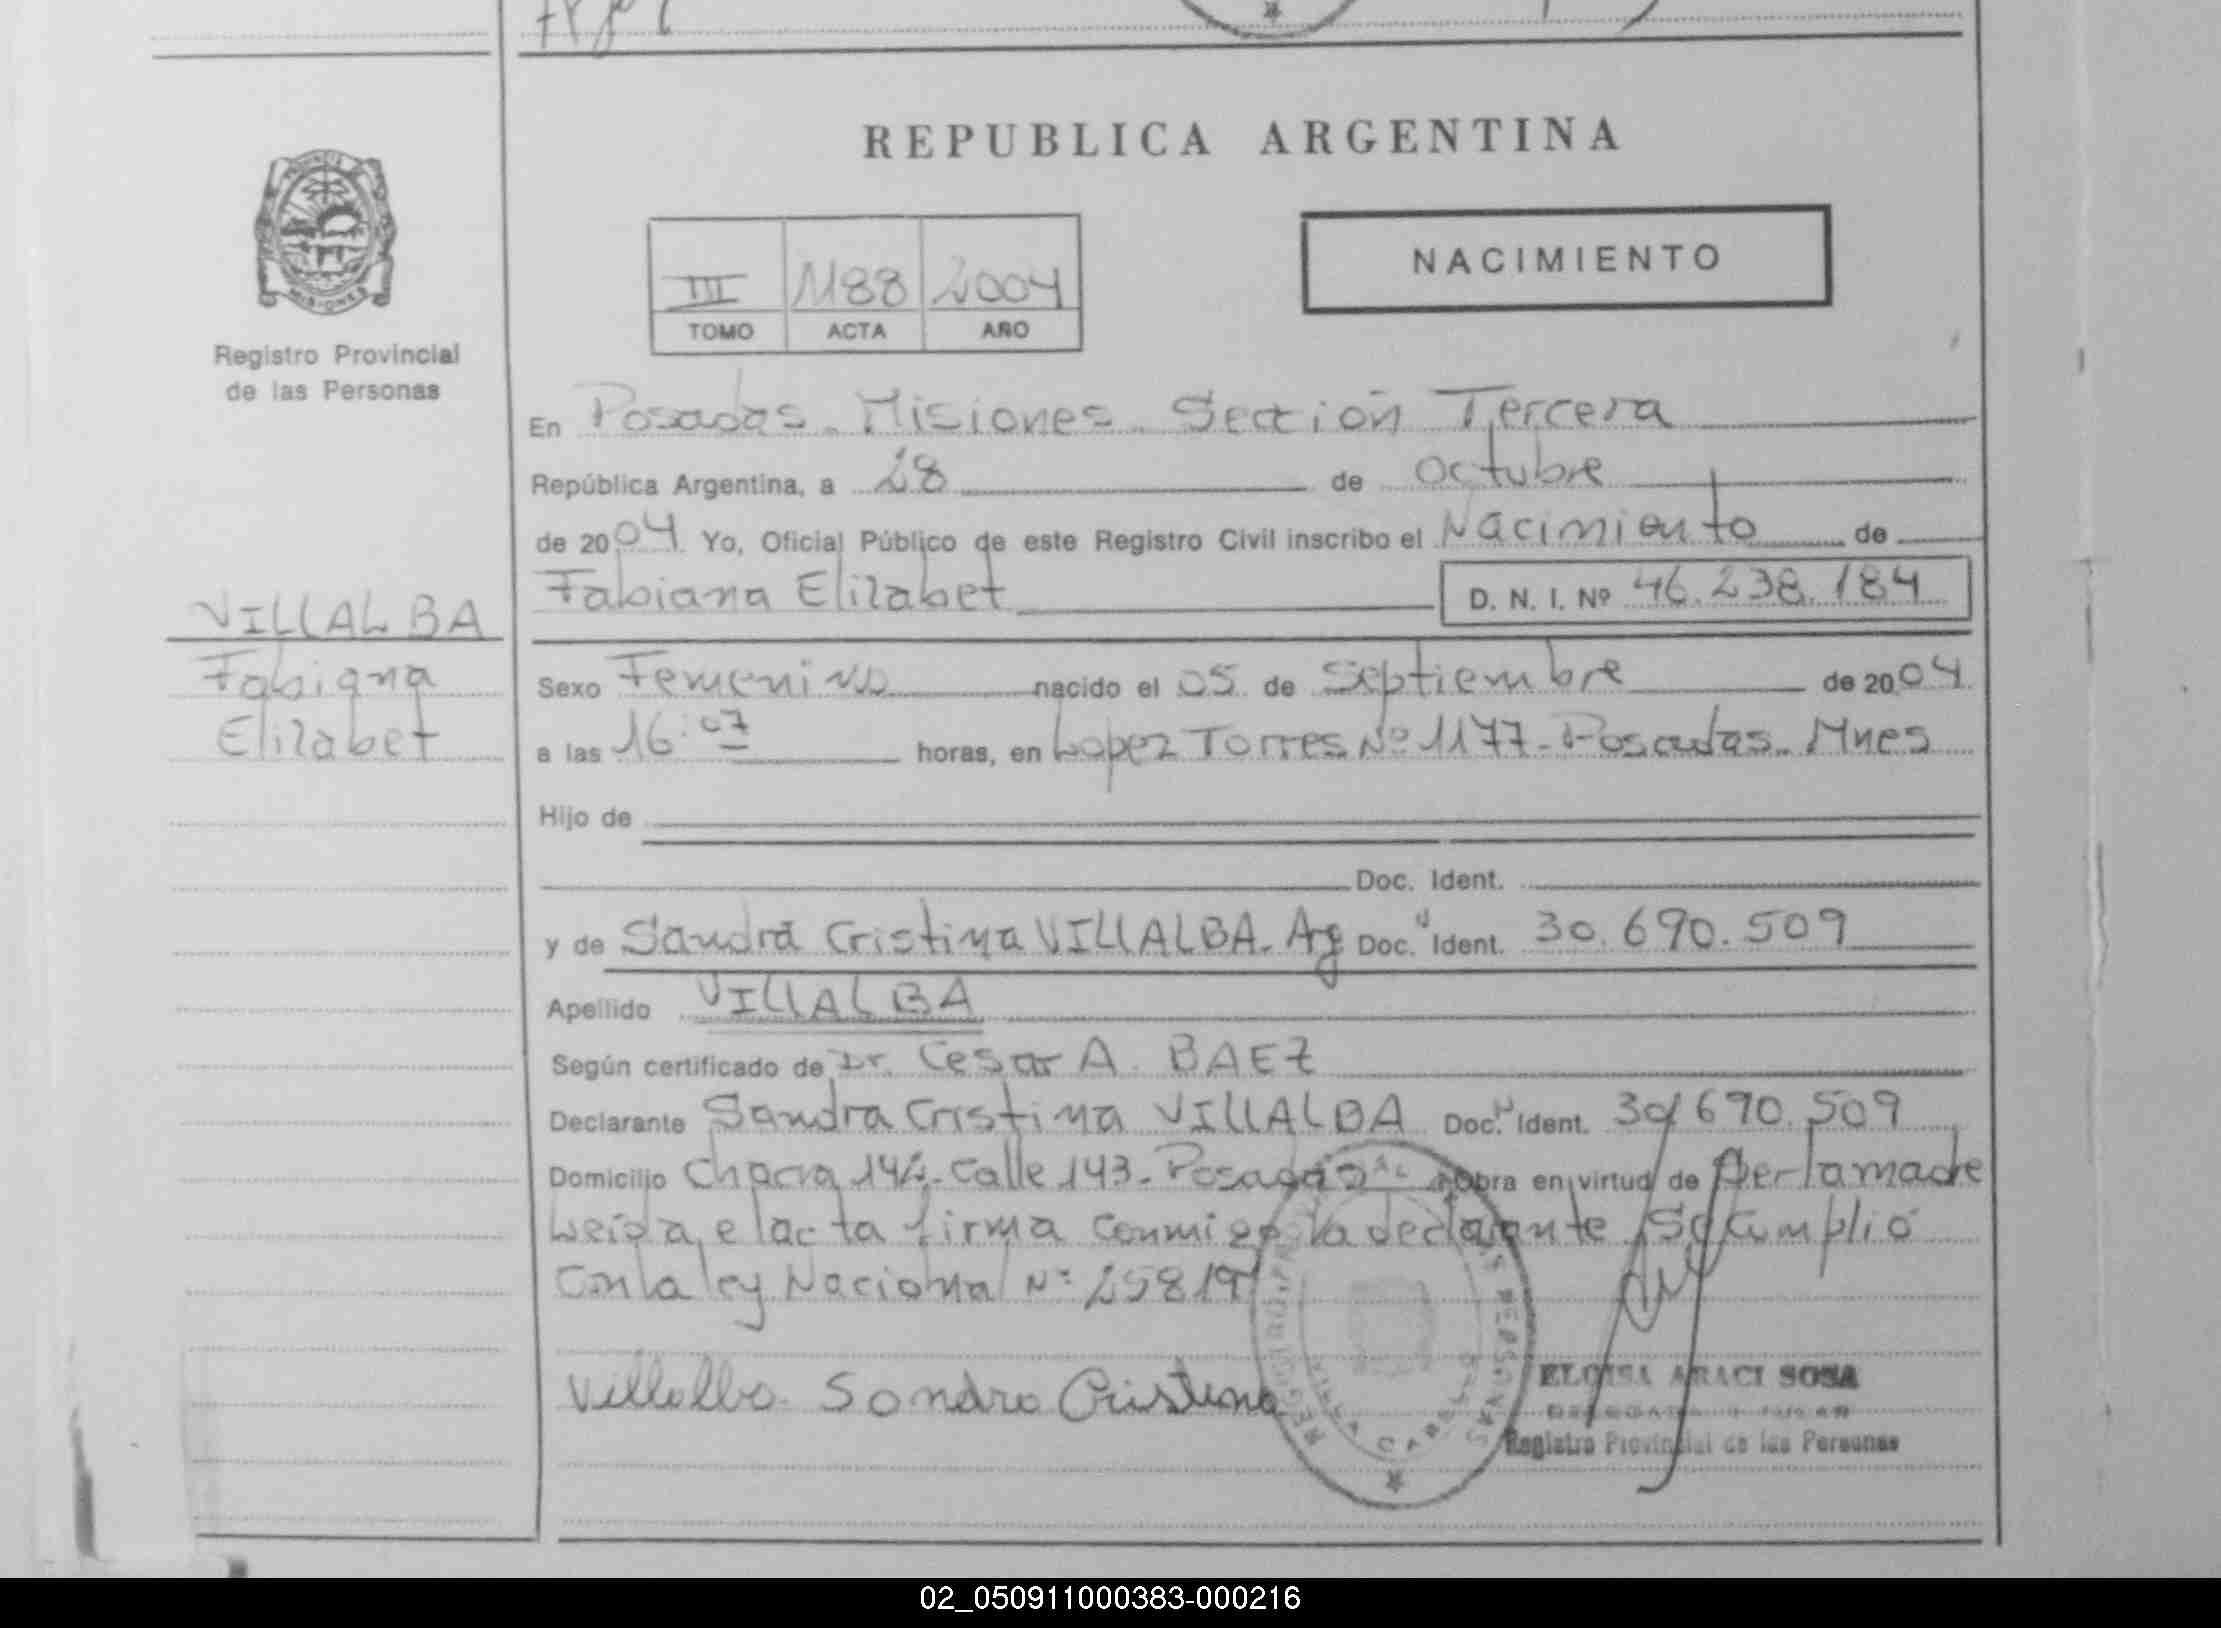 REPUBLICA ARGENTINA
MISIONES
Registro Provincial
de las Personas
III 1188 2004
TOMO ACTA AÑO
NACIMIENTO
En Posadas - Misiones - Sección Tercera
República Argentina, a 28 de Octubre
de 2004 Yo, Oficial Público de este Registro Civil inscribo el Nacimiento de
Fabiana Elizabet D. N. I. Nº 46.238.184
VILLALBA
Fabiana
Elizabet
Sexo Femenino nacido el 05 de Septiembre de 2004
a las 16:07 horas, en Lopez Torres Nº 1177 - Posadas - Mnes
Hijo de
Doc. Ident.
y de Sandra Cristina VILLALBA - Arg Doc. Ident. 30.690.509
Apellido VILLALBA
Según certificado de Dr. Cesar A. BAEZ
Declarante Sandra Cristina VILLALBA Doc. Ident. 30.690.509
Domicilio Chacra 144 - Calle 143 - Posadas Obra en virtud de Ser la madre
Leída el acta firma conmigo la declarante Se Cumplió
Con la ley Nacional Nº 25819
Villalba Sandra Cristina
ELOISA ARACI SOSA
Registro Provincial de las Personas
02_050911000383-000216